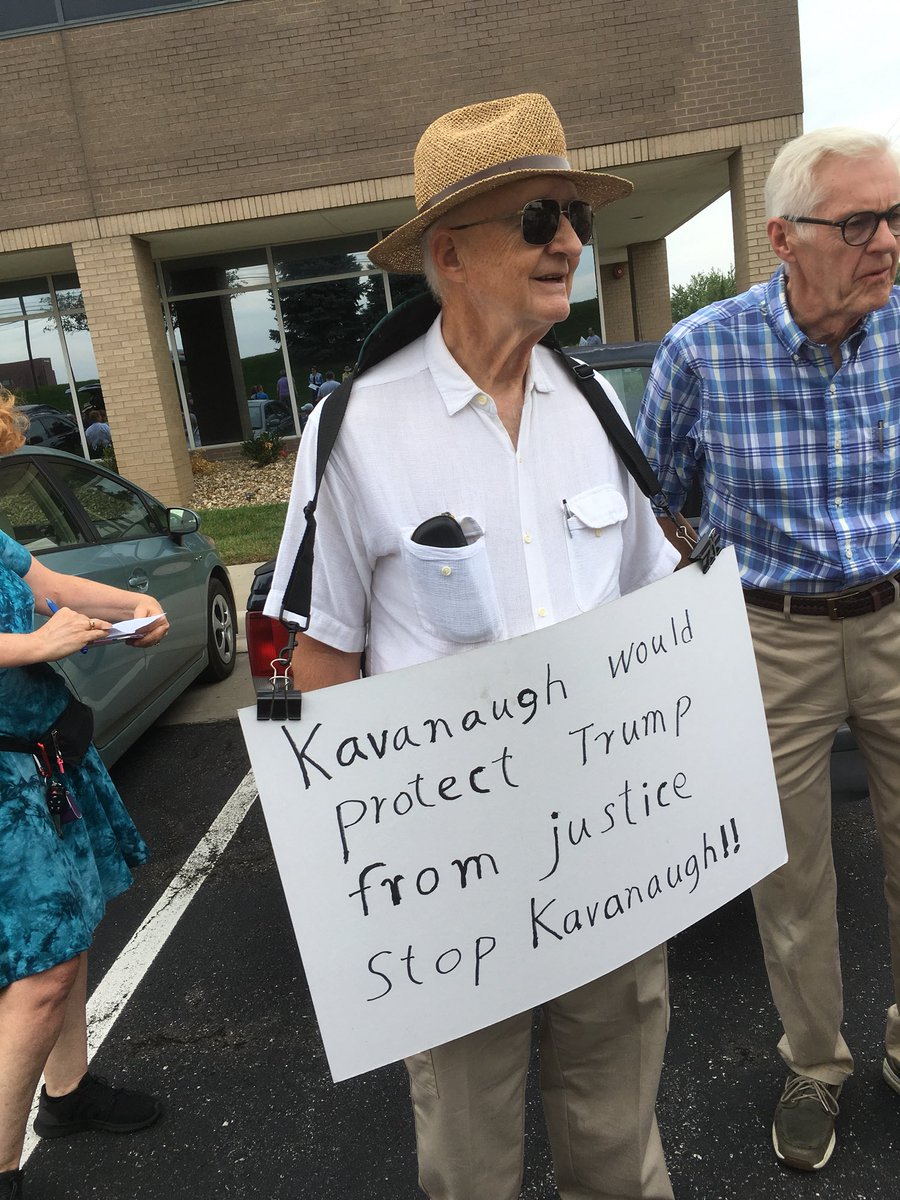 Kavanaugh would
protect Trump
from justice
Stop Kavanaugh!!